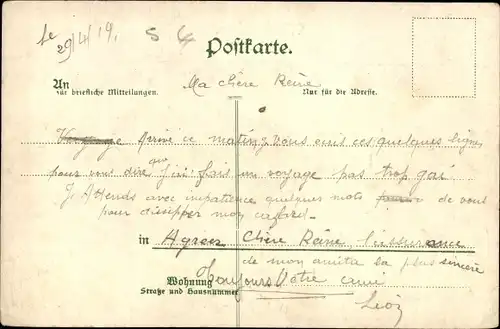 le 29/4/19.
Postkarte.
An
Ma chère Reine
für briefliche Mitteilungen.
Nur für die Adresse.
Arrivé ce matin, vous ecris ces quelques lignes
pour vous dire que j'ai fais un voyage pas trop gai
J'Attends avec impatience quelques mots de vous
pour dissiper mon cafard.
in Agreez Chère Reine l'assurance
de mon amitié la plus sincère
Wohnung Toujours Votre ami
Straße und Hausnummer
Léon